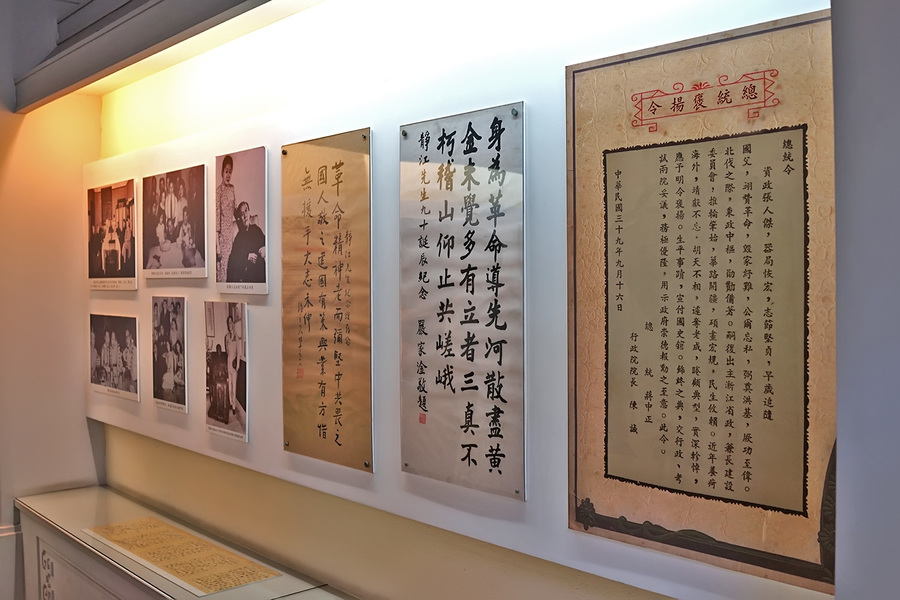 總統褒揚令
總統令
資政張人傑，器局恢宏，志節堅貞，早歲追隨
國父，翊贊革命，毀家紓難，公爾忘私，弼奠洪基，厥功至偉。
北伐之際，秉政中樞，勛勤備著。嗣復出主浙江省政，兼長建設
委員會，推輪肇始，篳路開疆，碩畫宏規，民生攸賴。近年養疴
海外，靖獻不忘，胡天不相，遽奪老成，睠顧典型，實深軫悼，
應予明令褒揚。生平事蹟，宣付國史館。飾終之典，交行政、考
試兩院妥議，務極優隆，用示政府崇德報勳之至意。此令。
總統 蔣中正
行政院院長 陳誠
中華民國三十九年九月十六日
身為革命導先河散盡黃
金未覺多有立者三真不
朽稽山仰止共嵯峨
靜江先生九十誕辰紀念 嚴家淦敬題
革命精神老而彌堅中共畏之
國人敬之建國有策興業有方惜
無援手大志未伸